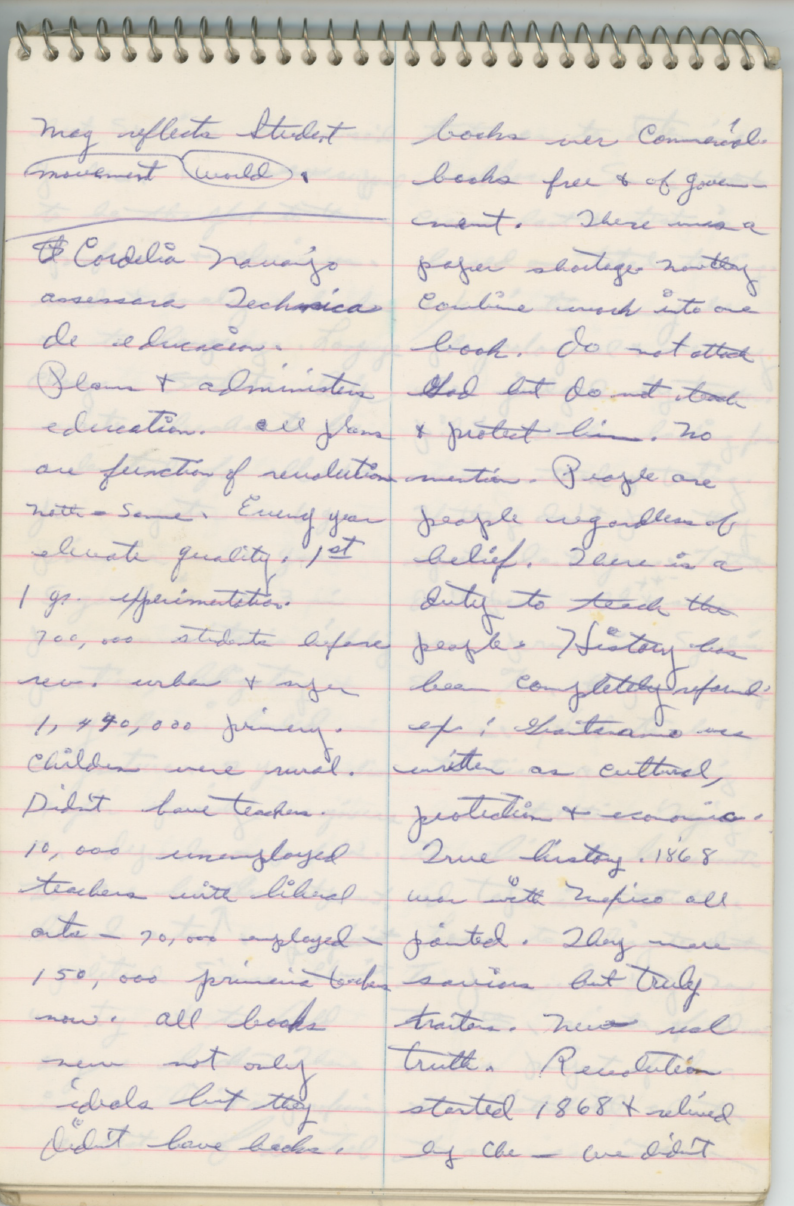 mag reflects Student
movement world.
Cordelia Navargo
assessara Technica
de educacion.
Plans & administers
education. all plans
are function of revolution
Every year
elevate quality. 1st
1 gr. experimentation.
700,000 students before
rev. urban &
1,490,000 primary.
Children were rural.
Didn't have teachers.
10,000 unemployed
teachers with liberal
arts – 70,000 employed –
150,000 primaria books
now. all books
new not only
ideals but they
didn't have books.
books were Commercial.
books free & of govern-
ment. There was a
paper shortage now they
Combine work into one
book. Do not attack
God but do not teach
& protect him. No
mention. People are
people regardless of
belief. There is a
duty to teach the
people. History has
been completely
ex: was
written as cultural,
protection & economic.
True history. 1868
war with all
painted. They were
saviors but truly
traitors. New real
truth. Revolution
started 1868 & relived
by Che – we didn't